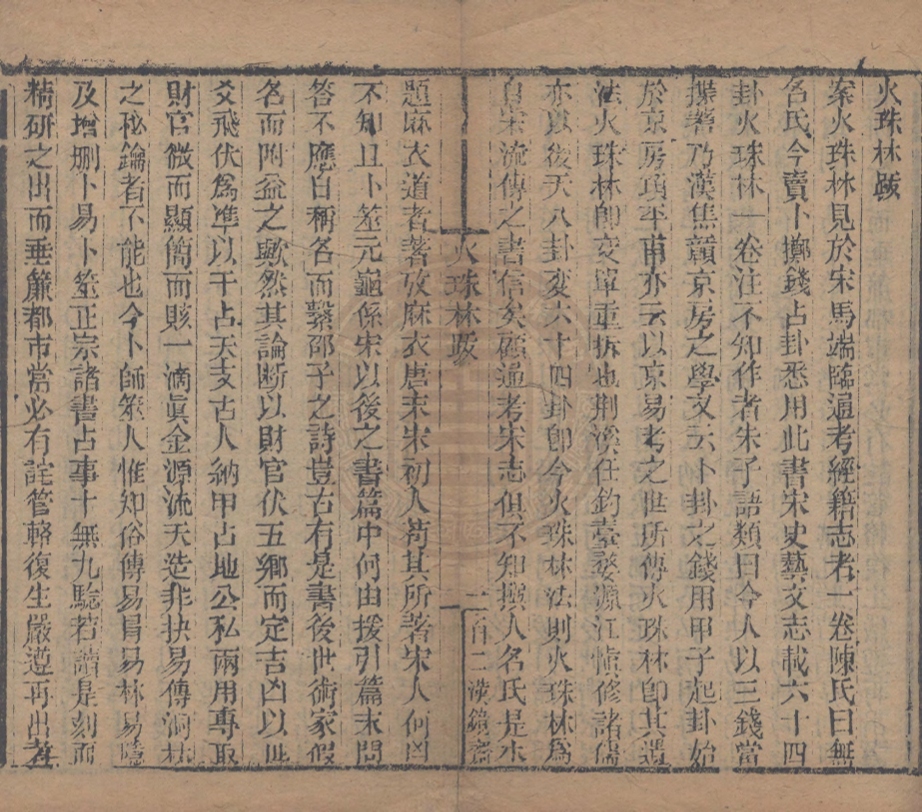 火珠林跋
案火珠林見於宋馬端臨通考經籍志者一卷陳氏曰無
名氏今賣卜擲錢占卦悉用此書宋史藝文志載六十四
卦火珠林一卷注不知作者朱子語類曰今人以三錢當
揲蓍乃漢焦贛京房之學又云卜卦之錢用甲子起卦始
於京房項平甫亦云以京易考之世所傳火珠林卽其遺
法火珠林卽交單重拆也荆溪任釣臺婺源江愼修諸儒
亦以後天八卦變六十四卦卽今火珠林法則火珠林爲
自宋流傳之書信矣顧通考宋志俱不知撰人名氏是本
火珠林跋
二百二 漢鏡齋
題麻衣道者著攷麻衣唐末宋初人苟其所著宋人何因
不知且卜筮元龜係宋以後之書篇中何由援引篇末問
答不應自稱名而繫邵子之詩豈古有是書後世術家假
名而附益之歟然其論斷以財官伏五鄉而定吉凶以世
爻飛伏爲準以干占天支古人納甲占地公私兩用專取
財官微而顯簡而賅一滴眞金源流天造非抉易傳洞林
之秘鑰者不能也今卜師筮人惟知俗傳易冐易林易隱
及增刪卜易卜筮正宗諸書占事十無九驗若讀是刻而
精研之出而垂簾都市當必有詫管輅復生嚴遵再出者